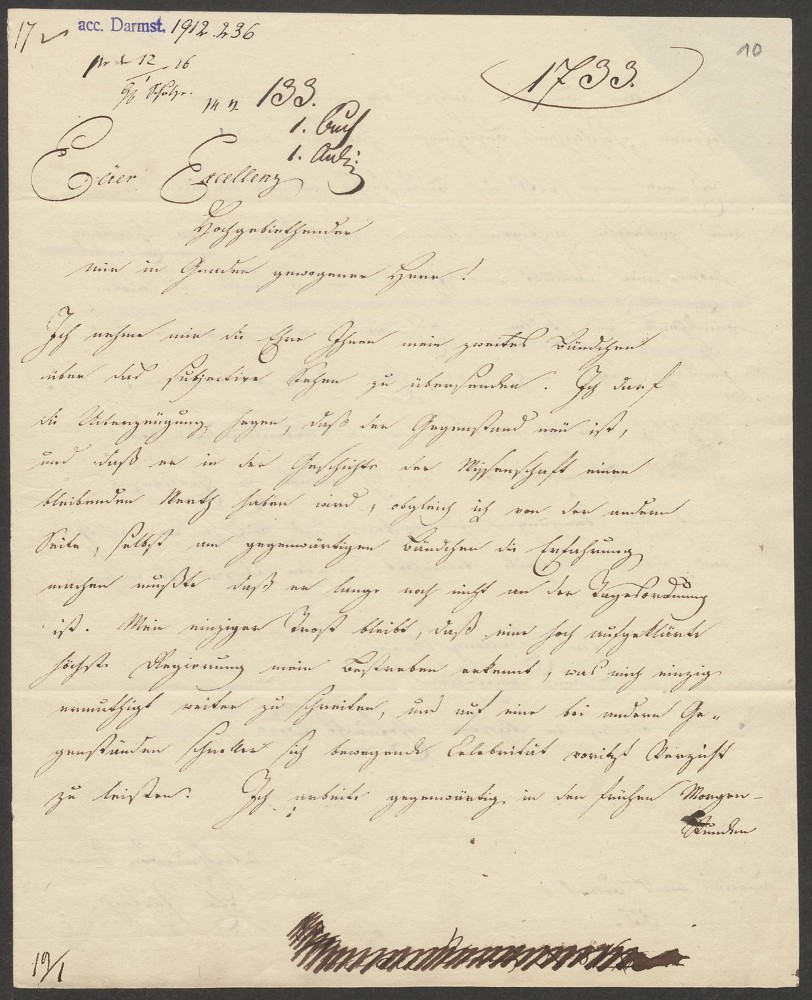 17
acc. Darmst. 1912.236
10
12 16
1733.
133.
1. Buch
1.
Euer Excellenz
Hochgebiethender
mir in Gnaden gewogener Herr!
Ich nehme mir die Ehre Ihnen mein zweites Bändchen
über das subjective Sehen zu übersenden. Ich darf
die Ueberzeugung hegen, daß der Gegenstand neu ist,
und daß er in der Geschichte der Wissenschaft einen
bleibenden Werth haben wird, obgleich ich von der andern
Seite, selbst am gegenwärtigen Bändchen die Erfahrung
machen mußte daß er lange noch nicht an der Tagesordnung
ist. Mein einziger Trost bleibt, daß eine hoch aufgeklärte
höchste Regierung mein Bestreben erkennt, was mich einzig
ermuthigt weiter zu schreiten, und auf eine bei andern Ge-
genständen schneller sich bewegende Celebrität Verzicht
zu leisten. Ich arbeite gegenwärtig in den frühen Morgen-
stunden
19/1